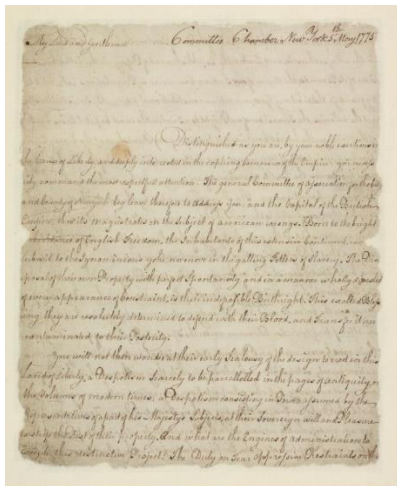 My Lords and Gentlemen Committee Chamber New York 5th May 1775
Distinguished as you are, by your noble exertions in
the Cause of Liberty, and deeply interested in the expiring Commerce of the Empire you
command the most respectful attention. The general Committee of association for the City
and County of New york beg leave to address you, and the Capital of the British
Empire, thro its magistrates on the Subject of american wrongs. Born to the bright
of English Freedom, the Inhabitants of this extensive Continent, can
submit to the yoke nor move in the galling Fetters of Slavery. The Dis
posal of their own Property with perfect Spontaneity and in a manner wholly divested
of every appearance of Constraint, is their Birthright. This exalted Bles
sing, they are resolutely determined to defend with their Blood, and Transfer it un
contaminated to their Posterity.
You will not then wonder at their early Jealousy of the design to erect in this
Land of Liberty, a Despotism Scarcely to be parrallelled in the pages of antiquity, or
the Volumes of modern times; a Despotism consisting in Power assumed by the
Representatives of a part of his Majestys Subjects, at their Sovereign will and Pleasure
to strip the rest of their Property. And what are the Engines of administration to
execute this destructive Project? The Duty on Tea; oppressive Restraints on the